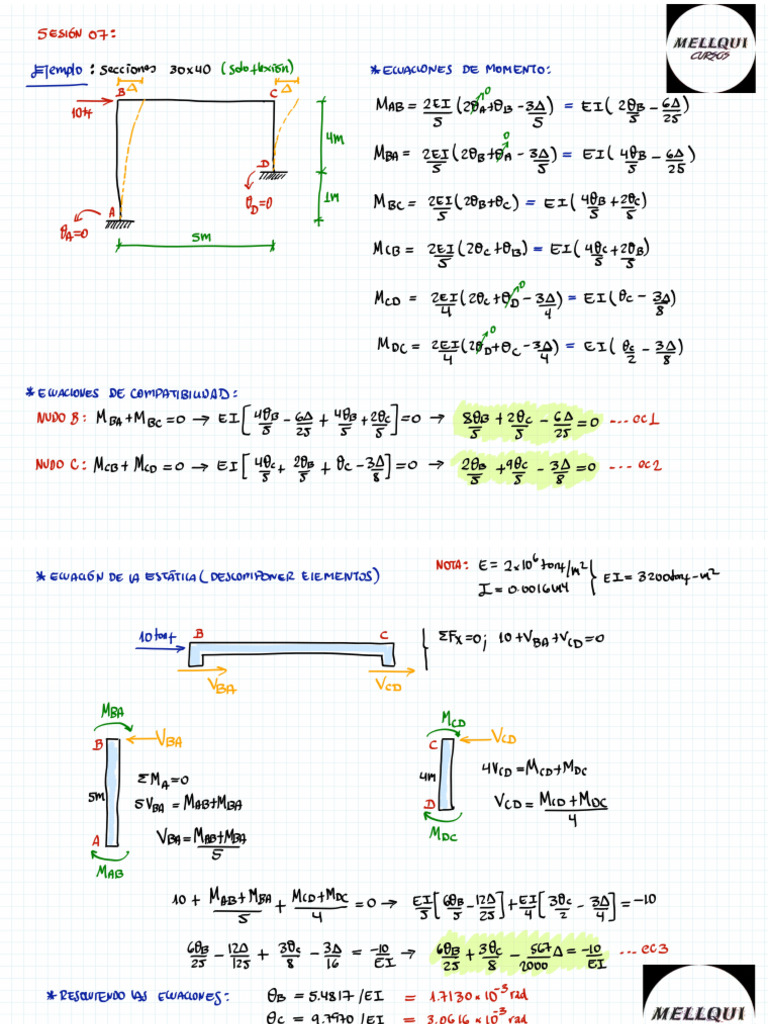 SESIÓN 07:
MELLQUI
CURSOS
Ejemplo: Secciones 30x40 (solo flexión)
* ECUACIONES DE MOMENTO:
B Δ C Δ
10tf
4m
D
θD=0
1m
A
θA=0
5m
MAB = 2EI/5 (2θA+θB-3Δ/5) = EI(2θB/5 - 6Δ/25)
0
MBA = 2EI/5 (2θB+θA-3Δ/5) = EI(4θB/5 - 6Δ/25)
0
MBC = 2EI/5 (2θB+θC) = EI(4θB/5 + 2θC/5)
MCB = 2EI/5 (2θC+θB) = EI(4θC/5 + 2θB/5)
MCD = 2EI/4 (2θC+θD-3Δ/4) = EI(θC - 3Δ/8)
0
MDC = 2EI/4 (2θD+θC-3Δ/4) = EI(θC/2 - 3Δ/8)
0
* ECUACIONES DE COMPATIBILIDAD:
NUDO B: MBA+MBC=0 → EI[4θB/5 - 6Δ/25 + 4θB/5 + 2θC/5]=0 → 8θB/5 + 2θC/5 - 6Δ/25 = 0 ---ec1
NUDO C: MCB+MCD=0 → EI[4θC/5 + 2θB/5 + θC - 3Δ/8]=0 → 2θB/5 + 9θC/5 - 3Δ/8 = 0 ---ec2
* ECUACIÓN DE LA ESTÁTICA (DESCOMPONER ELEMENTOS)
NOTA: E = 2x10⁶ tonf/m²
I = 0.0016m4
EI = 3200tonf-m²
10tonf B C
VBA VCD
ΣFx=0; 10+VBA+VCD=0
MBA
B VBA
5m
A
MAB
ΣMA=0
5VBA = MAB+MBA
VBA = MAB+MBA/5
MCD
C VCD
4m
D
MDC
4VCD = MCD+MDC
VCD = MCD+MDC/4
10 + MAB+MBA/5 + MCD+MDC/4 = 0 → EI/5[6θB/5 - 12Δ/25] + EI/4[3θC/2 - 3Δ/4] = -10
6θB/25 - 12Δ/125 + 3θC/8 - 3Δ/16 = -10/EI → 6θB/25 + 3θC/8 - 567/2000 Δ = -10/EI ---ec3
* RESOLVIENDO LAS ECUACIONES: θB = 5.4817/EI = 1.7130x10⁻³ rad
θC = 9.7970/EI = 3.0616x10⁻³ rad
MELLQUI